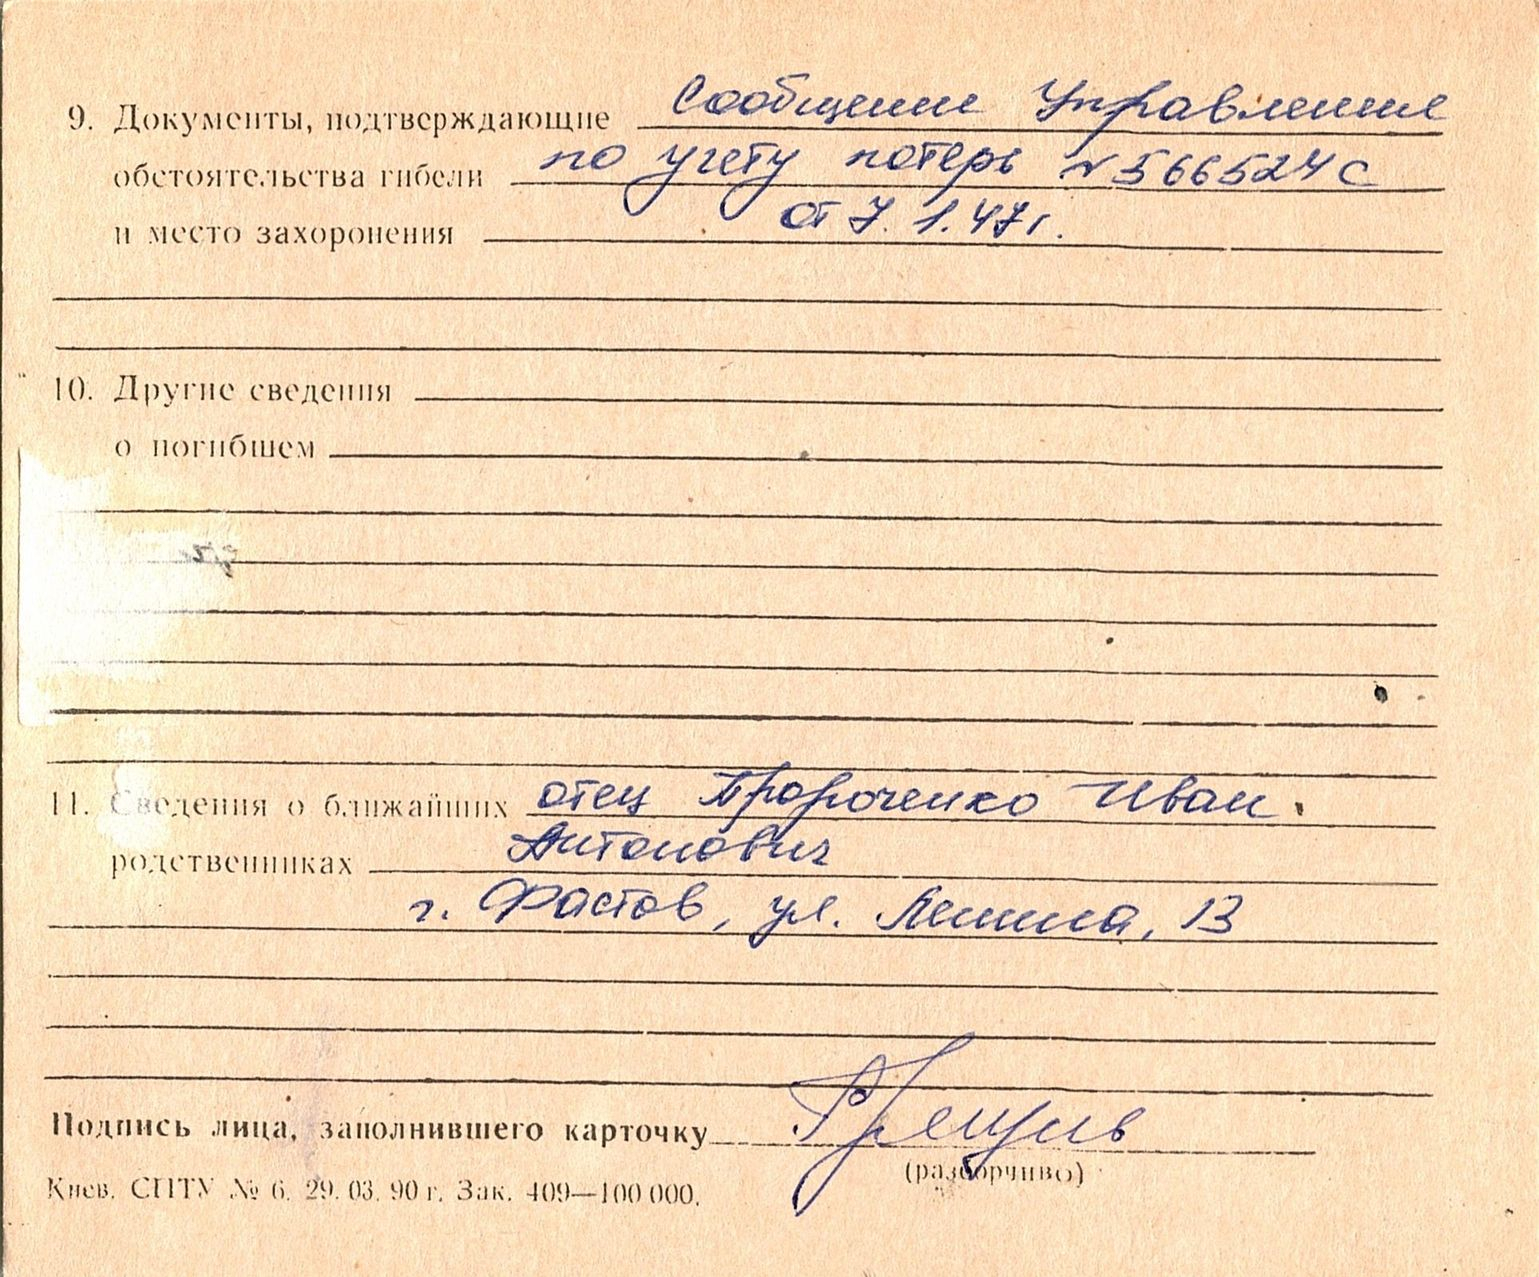 9. Документы, подтверждающие Сообщение Управления
обстоятельства гибели по учету потерь № 566524с
и место захоронения от 7. 1. 47 г.
10. Другие сведения
о погибшем
11. Сведения о ближайших отец Пророченко Иван
родственниках Антонович
г. Фастов, ул. Ленина, 13
Подпись лица, заполнившего карточку
(разборчиво)
Киев. СПТУ № 6. 29. 03. 90 г. Зак. 409—100 000.